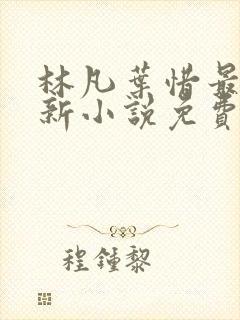 林凡葉惜最
新小說免費
程鍾黎